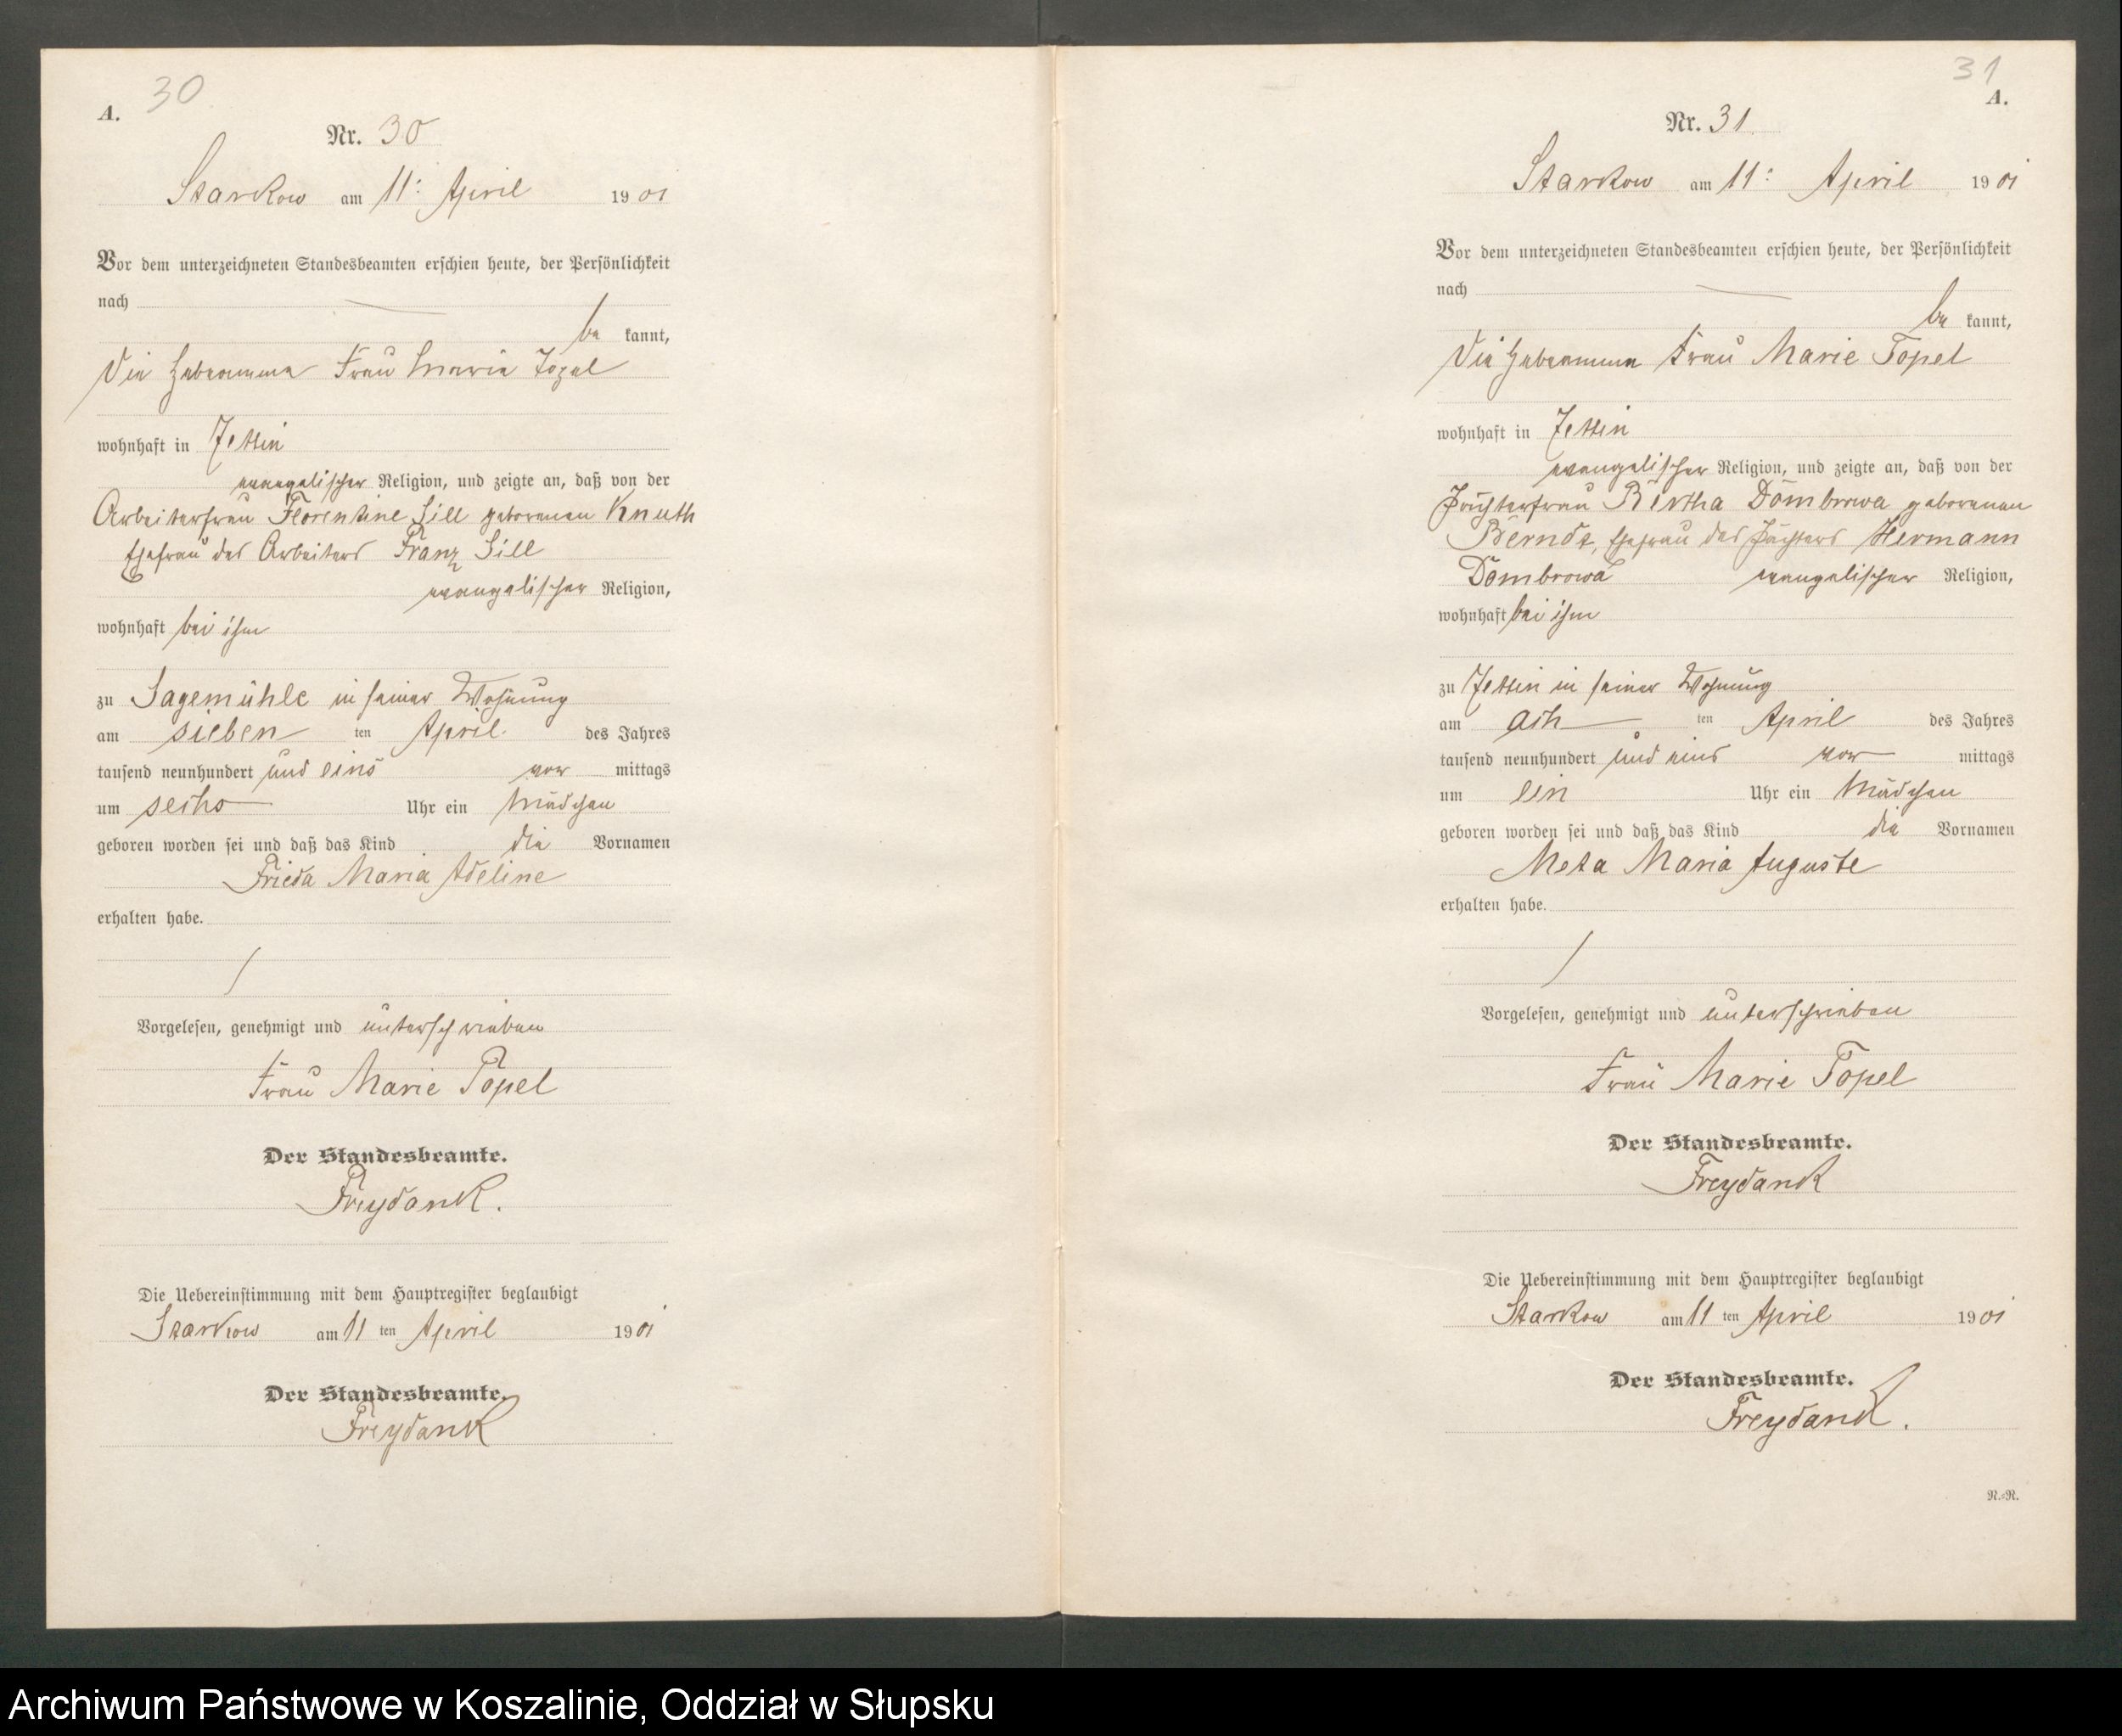 30
A.
Nr. 30
Starkow am 11ᵗ April 1901
Vor dem unterzeichneten Standesbeamten erschien heute, der Persönlichkeit
nach
be kannt,
Die Hebeamme Frau Marie Topel
wohnhaft in Jettin
evangelischer Religion, und zeigte an, daß von der
Arbeiterfrau Florentine Sill geborenen Knuth
Ehefrau des Arbeiters Franz Sill
evangelischer Religion,
wohnhaft bei ihm
zu Sagemühle in seiner Wohnung
am sieben ten April des Jahres
tausend neunhundert und eins vor mittags
um sechs Uhr ein Mädchen
geboren worden sei und daß das Kind die Vornamen
Frieda Maria Adeline
erhalten habe.
Vorgelesen, genehmigt und unterschrieben
Frau Marie Topel
Der Standesbeamte.
Freydank.
Die Uebereinstimmung mit dem Hauptregister beglaubigt
Starkow am 11 ten April 1901
Der Standesbeamte.
Freydank
31
A.
Nr. 31
Starkow am 11ᵗ April 1901
Vor dem unterzeichneten Standesbeamten erschien heute, der Persönlichkeit
nach
be kannt,
Die Hebeamme Frau Marie Topel
wohnhaft in Jettin
evangelischer Religion, und zeigte an, daß von der
Pächterfrau Bertha Dombrowa geborenen
Berndt, Ehefrau des Pächters Hermann
Dombrowa evangelischer Religion,
wohnhaft bei ihm
zu Jettin in seiner Wohnung
am ach ten April des Jahres
tausend neunhundert und eins vor mittags
um ein Uhr ein Mädchen
geboren worden sei und daß das Kind die Vornamen
Meta Maria Auguste
erhalten habe.
Vorgelesen, genehmigt und unterschrieben
Frau Marie Topel
Der Standesbeamte.
Freydank
Die Uebereinstimmung mit dem Hauptregister beglaubigt
Starkow am 11 ten April 1901
Der Standesbeamte.
Freydank.
R.=R.
Archiwum Państwowe w Koszalinie, Oddział w Słupsku